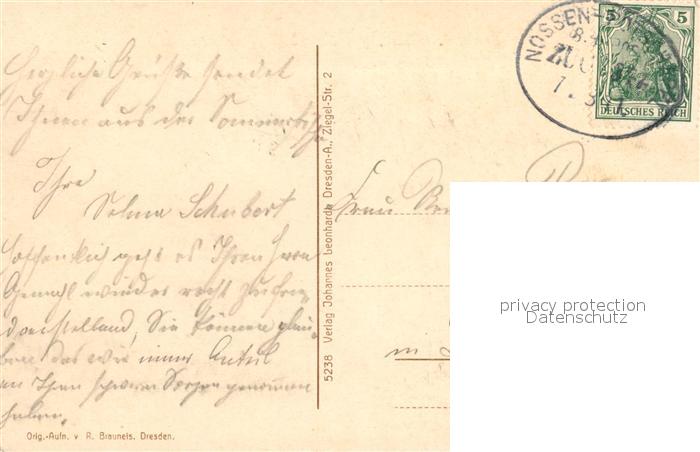 Herzliche Grüße sendet
Ihnen aus der Sommerfrische
Ihre
Selma Schubert
Hoffentlich geht es Ihren Herrn
Gemahl wieder recht zufrie-
denstellend, Sie können glau-
ben das wir immer Anteil
an Ihren schweren Sorgen genommen
haben.
Orig.-Aufn. v R. Brauneis, Dresden.
5238 Verlag Johannes Leonhardt Dresden-A., Ziegel-Str. 2
NOSSEN-
ZUG
5 5
DEUTSCHES REICH
Frau
in
privacy protection
Datenschutz